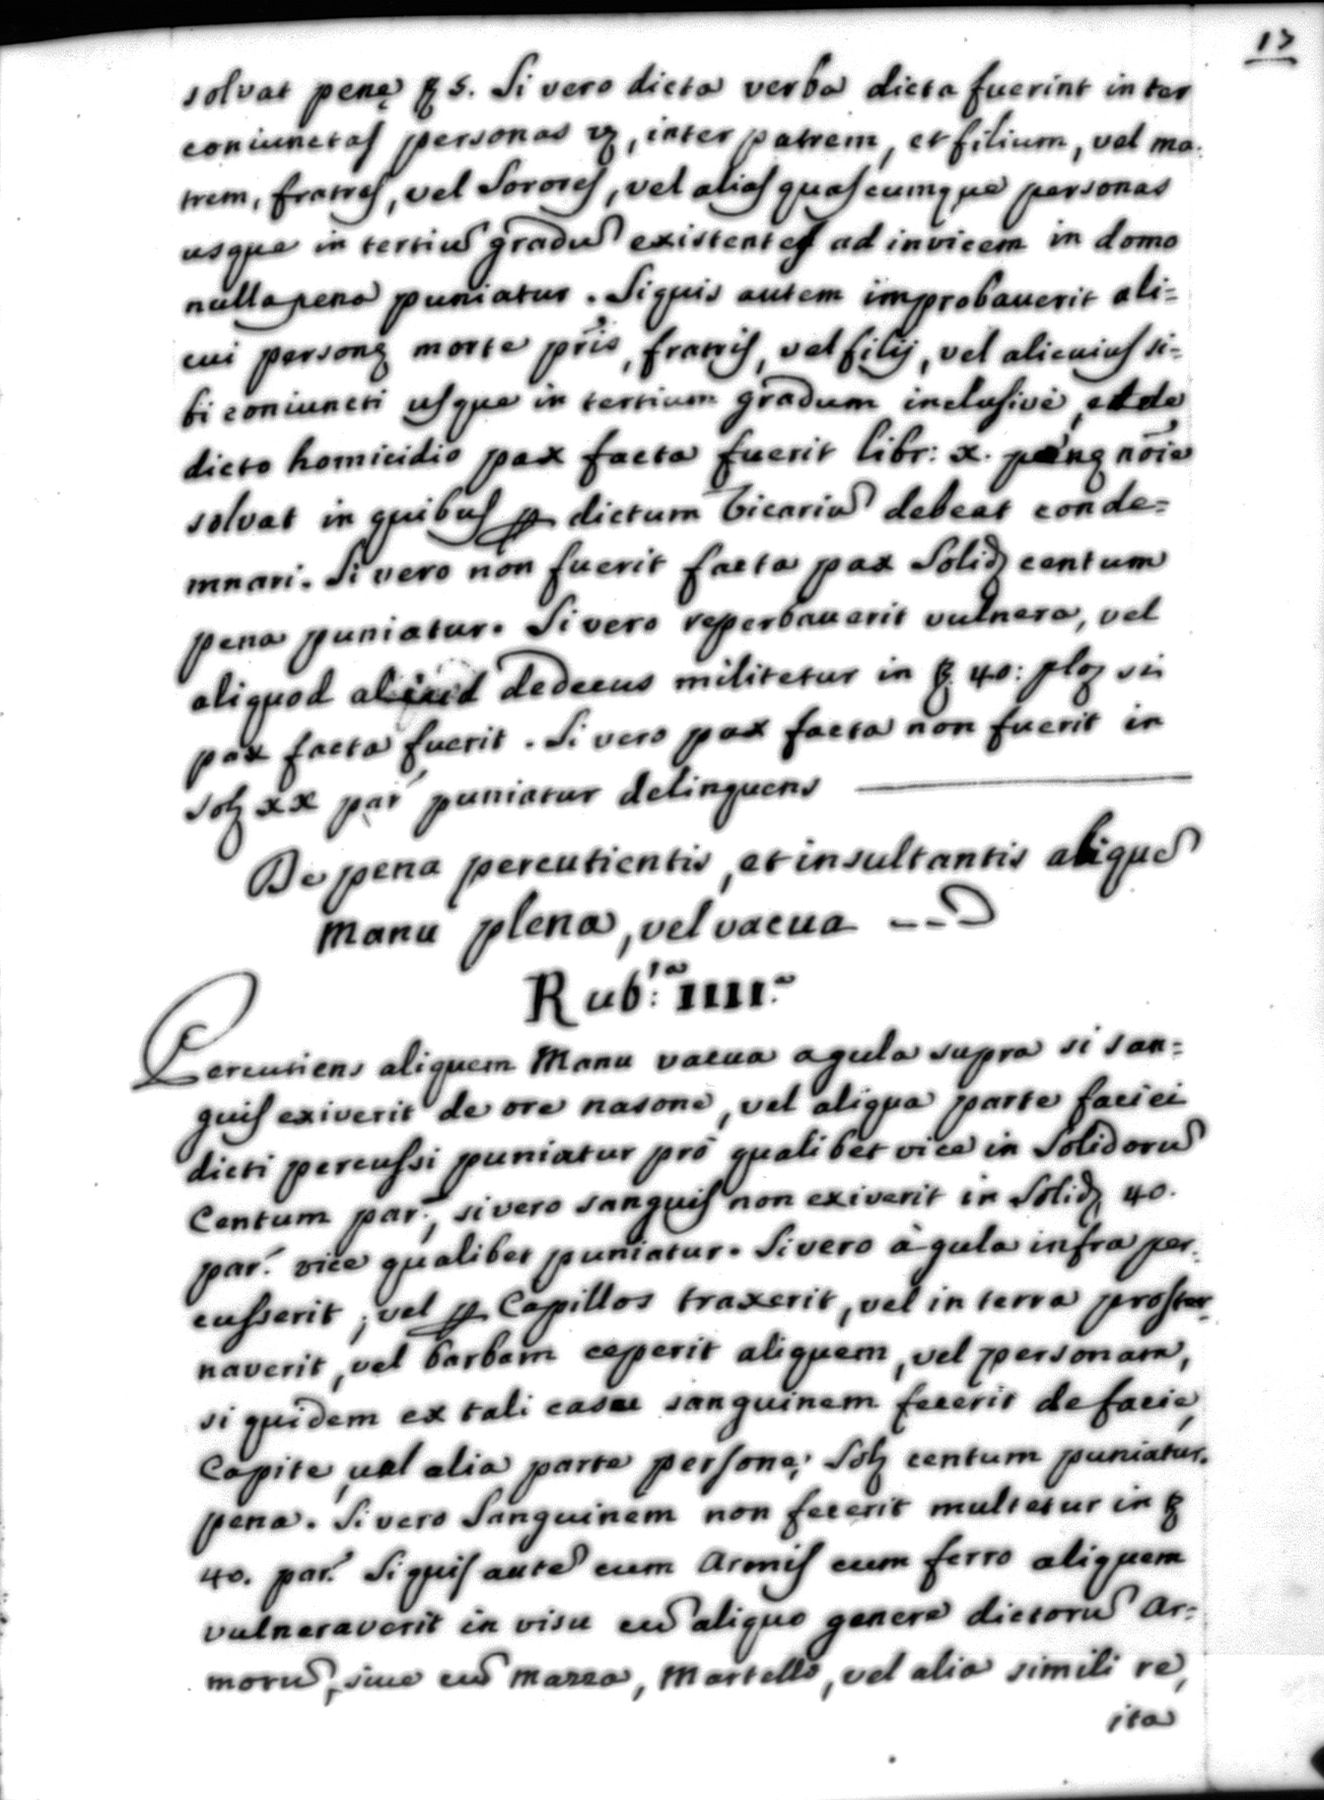 13
solvat penę ℔ 5. Si vero dicta verba dicta fuerint inter
coniunctas personas vz, inter patrem, et filium, vel ma:
trem, fratres, vel Sorores, vel alias quascumque personas
usque in tertiũ gradũ existentes ad invicem in domo
nulla pena puniatur. Siquis autem improbauerit ali=
cui personę morte pr̃is, fratris, vel filij, vel alicuius si=
bi coniuncti usque in tertium gradum inclusivè, et de
dicto homicidio pax facta fuerit libr: x. penę nõie
solvat in quibus ꝑ dictum Vicariũ debeat conde=
mnari. Si vero non fuerit facta pax Solid centum
pena puniatur. Si vero reperbauerit vulnera, vel
aliquod aliud dedecus militetur in ℔ 40: si
pax facta fuerit. Si vero pax facta non fuerit in
sol xx par̃ puniatur delinquens
De pena percutientis, et insultantis aliquẽ
Manu plena, vel vacua
Rub:ᶜᵃ IIII.ᵃ
Percutiens aliquem Manu vacua a gula supra si san=
guis exiverit de ore nasone, vel aliqua parte faciei
dicti percussi puniatur prò qualibet vice in Solidorũ
Centum par., si vero sanguis non exiverit in Solid 40.
par. vice qualibet puniatur. Si vero à gula infra per:
cusserit, vel ꝑ Capillos traxerit, vel in terra proster=
naverit, vel barbam ceperit aliquem, vel personam,
si quidem ex tali casu sanguinem fecerit de facie,
Capite, vel alia parte personę, Sol centum puniatur.
pena. Si vero Sanguinem non fecerit multetur in ℔
40. par. Siquis autẽ cum Armis cum ferro aliquem
vulneraverit in visu cũ aliquo genere dictorũ Ar=
morũ, sive cũ Mazza, Martello, vel alia simili re,
ita